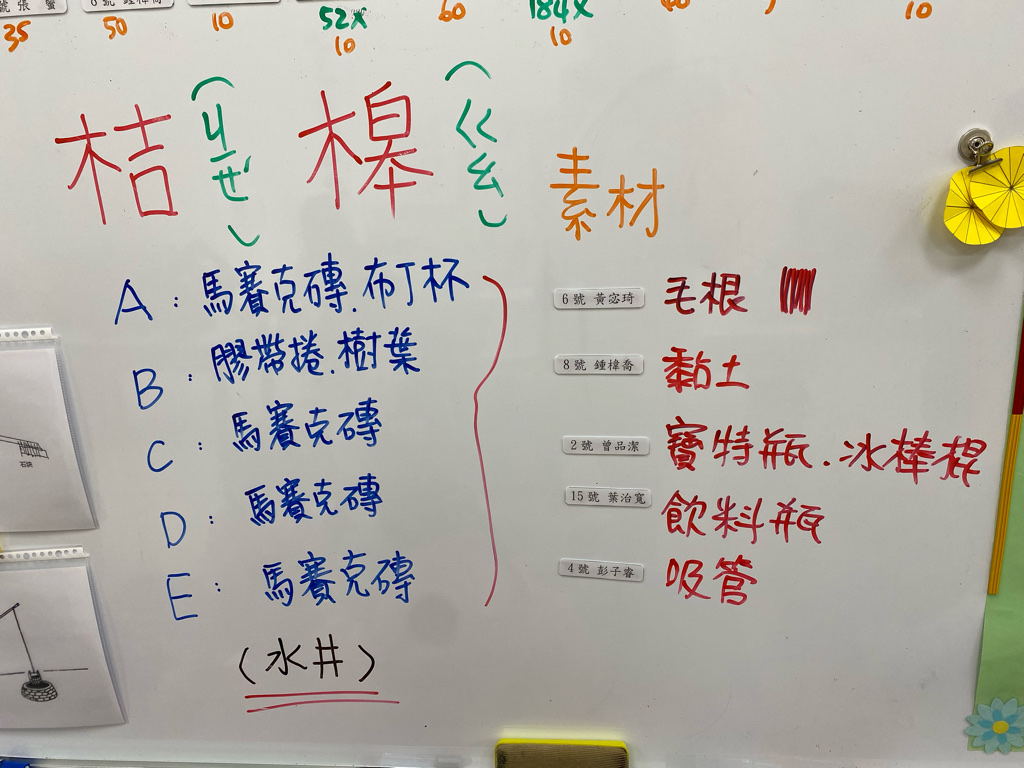 35 50 10 52x 60 184x 10
10 10
桔(ㄐㄧㄝˊ) 槔(ㄍㄠ)
素材
A:馬賽克磚.布丁杯
B:膠帶捲.樹葉
C:馬賽克磚
D:馬賽克磚
E:馬賽克磚
(水井)
6號 黃宓琦 毛根
8號 鍾樟喬 黏土
2號 曾品潔 寶特瓶.冰棒棍
15號 葉治寬 飲料瓶
4號 彭子睿 吸管
石塊